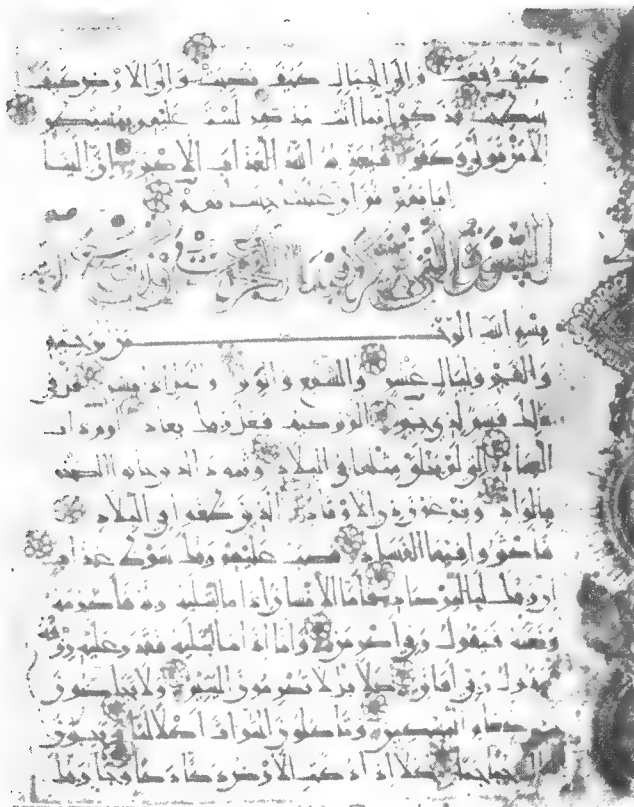 كيف رفعت وإلى الجبال كيف نصبت وإلى الأرض كيف
سطحت فذكر إنما أنت مذكر لست عليهم بمصيطر
إلا من تولى وكفر فيعذبه الله العذاب الأكبر إن إلينا
إيابهم ثم إن علينا حسابهم
بسم الله الرحمن الرحيم
والفجر وليال عشر والشفع والوتر واليل إذا يسر هل في
ذلك قسم لذي حجر ألم تر كيف فعل ربك بعاد إرم ذات
العماد التي لم يخلق مثلها في البلاد وثمود الذين جابوا الصخر
بالواد وفرعون ذي الأوتاد الذين طغوا في البلاد
فأكثروا فيها الفساد فصب عليهم ربك سوط عذاب
إن ربك لبالمرصاد فأما الإنسان إذا ما ابتليه ربه فأكرمه
ونعمه فيقول ربي أكرمن وأما إذا ما ابتليه فقدر عليه رزقه
فيقول ربي أهانن كلا بل لا تكرمون اليتيم ولا تحاضون
على طعام المسكين وتأكلون التراث أكلا لما وتحبون
المال حبا جما كلا إذا دكت الأرض دكا دكا وجاء ربك